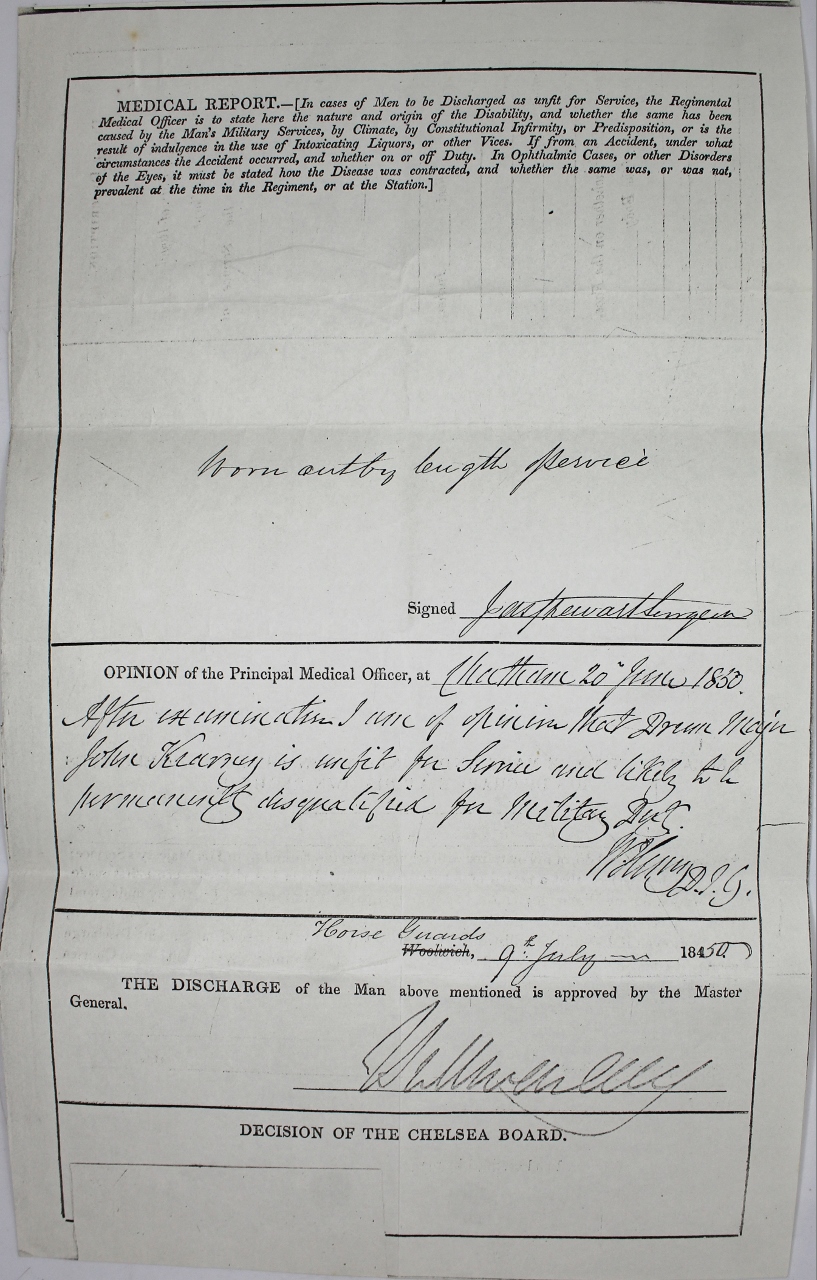 MEDICAL REPORT.—[In cases of Men to be Discharged as unfit for Service, the Regimental
Medical Officer is to state here the nature and origin of the Disability, and whether the same has been
caused by the Man's Military Services, by Climate, by Constitutional Infirmity, or Predisposition, or is the
result of indulgence in the use of Intoxicating Liquors, or other Vices. If from an Accident, under what
circumstances the Accident occurred, and whether on or off Duty. In Ophthalmic Cases, or other Disorders
of the Eyes, it must be stated how the Disease was contracted, and whether the same was, or was not,
prevalent at the time in the Regiment, or at the Station.]
Worn out by length service
Signed Jas Stewart Surgeon
OPINION of the Principal Medical Officer, at Chatham 20 June 1850.
After examination I am of opinion that Drum Major
John Kearney is unfit for Service and likely to be
permanently disqualified for Military Duty.
D.I.G.
Horse Guards
Woolwich, 9th July 18450
THE DISCHARGE of the Man above mentioned is approved by the Master
General.
DECISION OF THE CHELSEA BOARD.